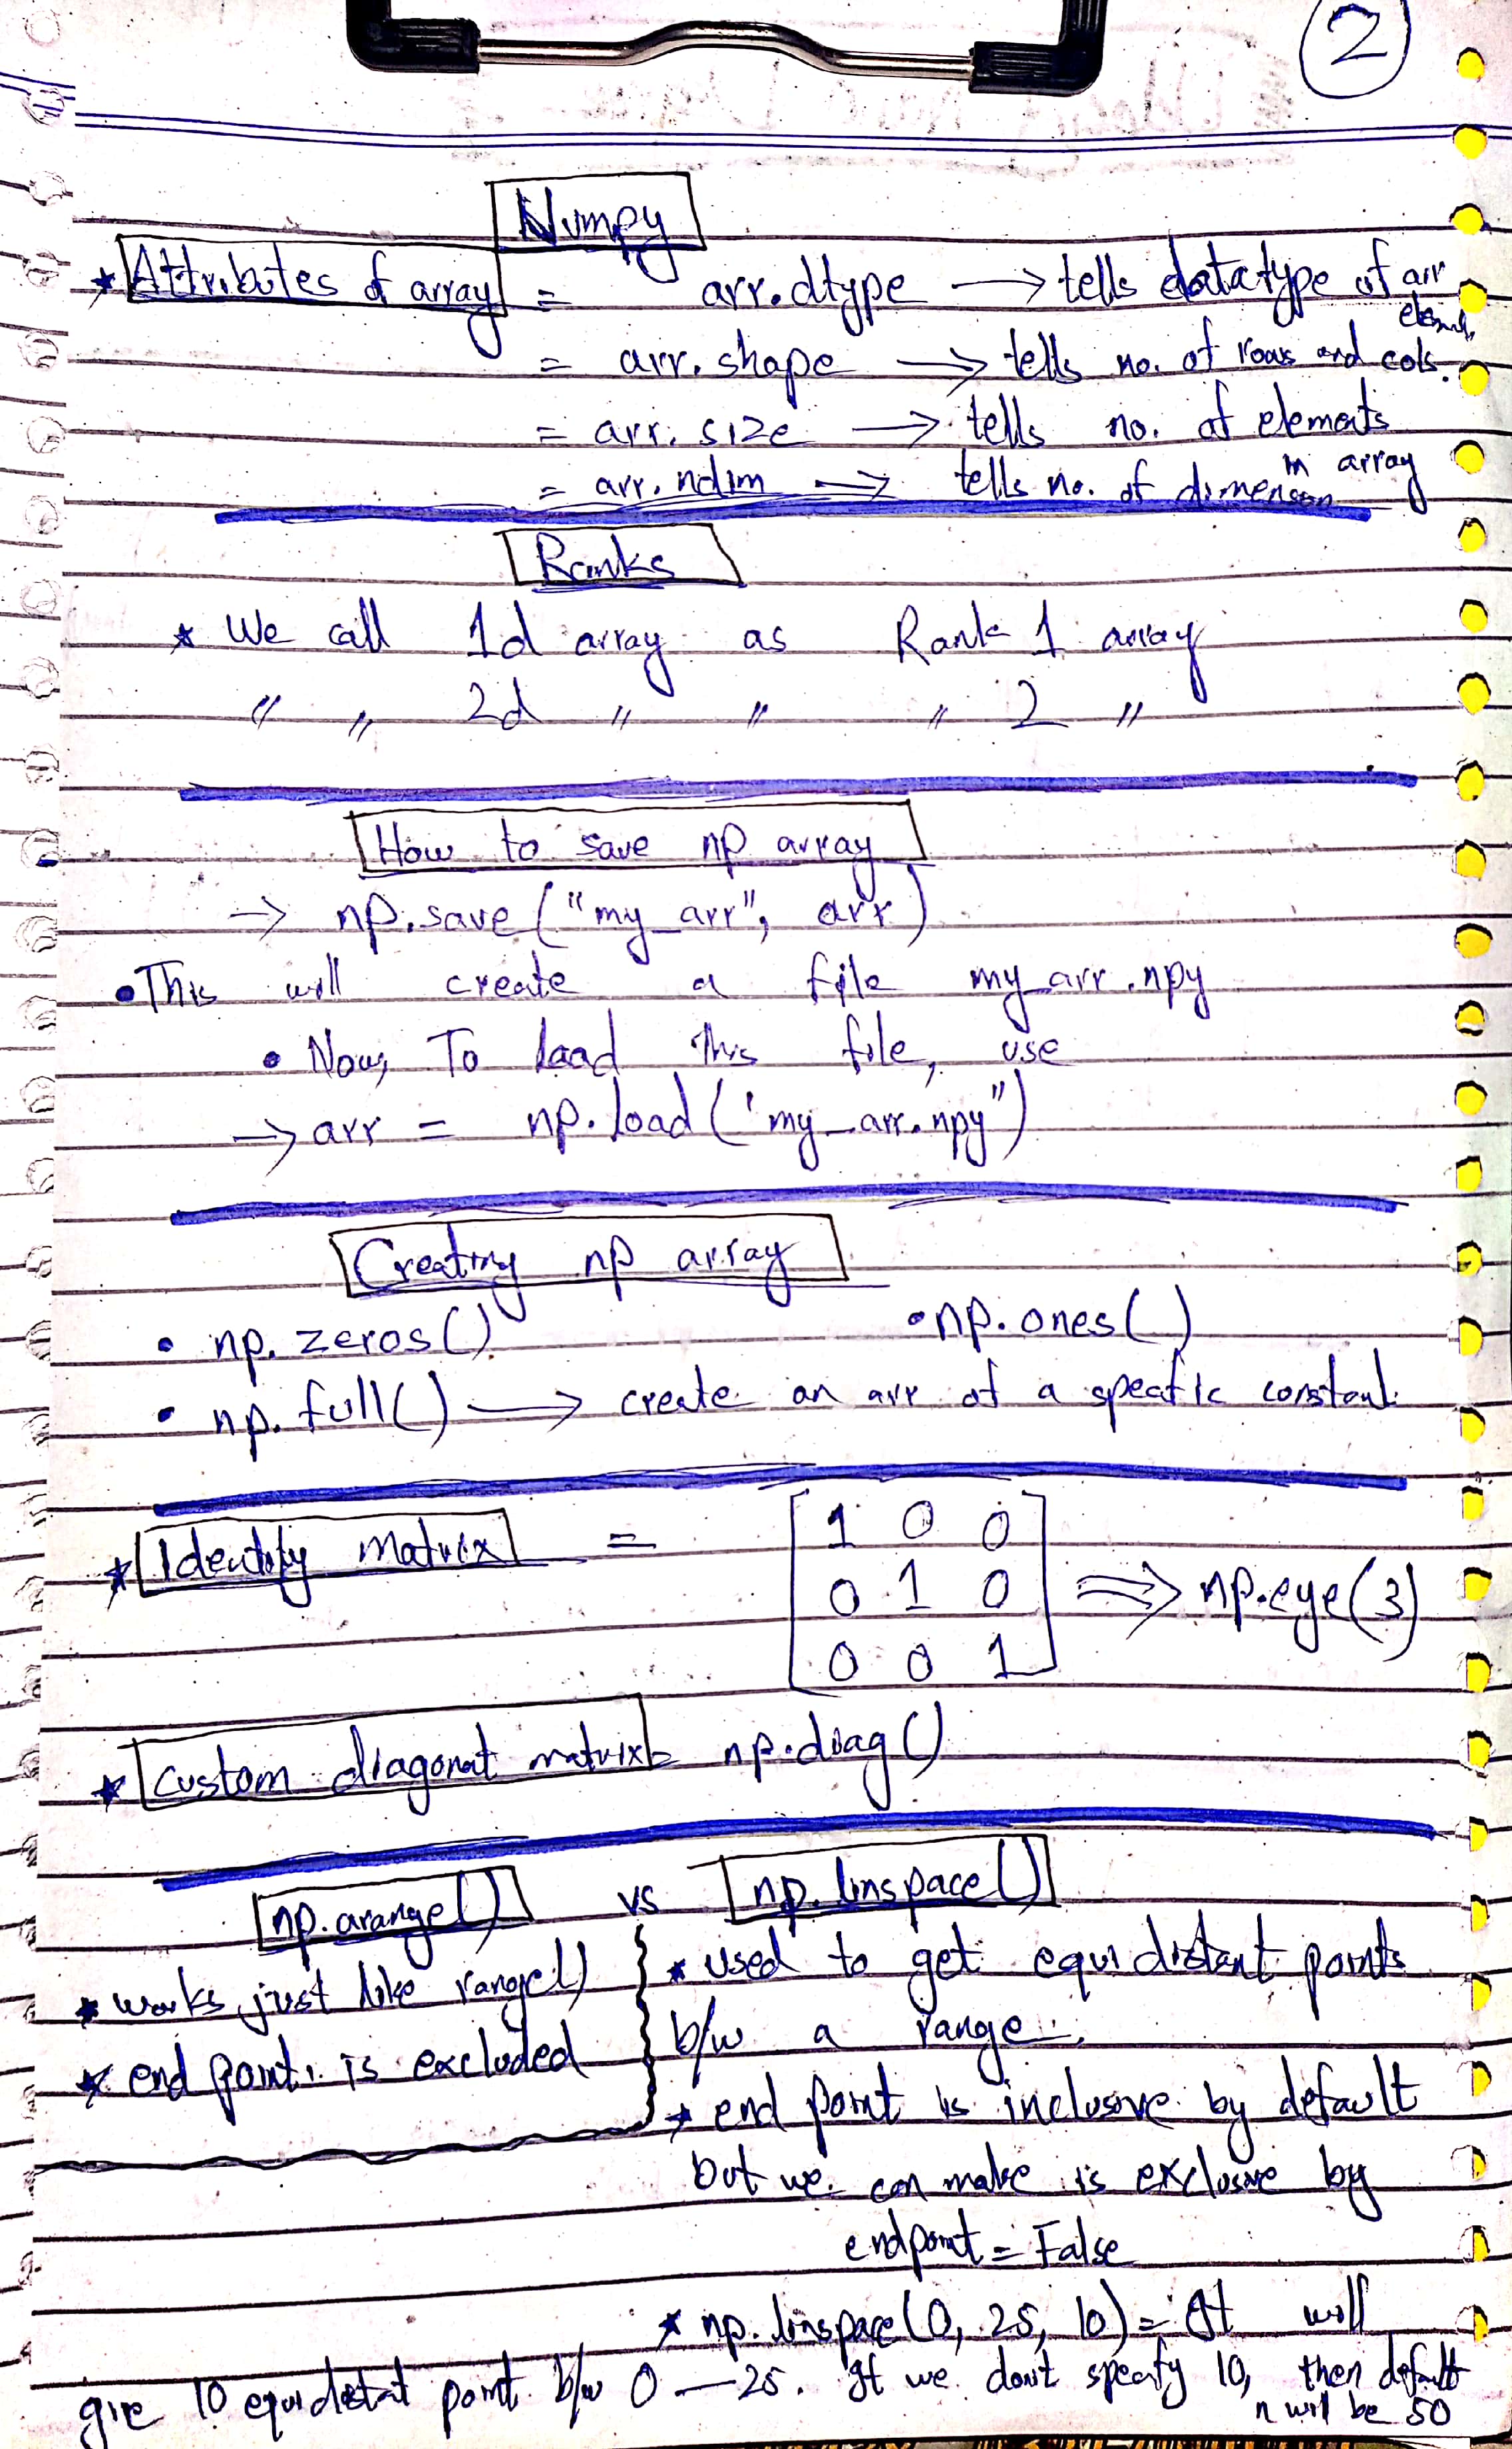 2
Numpy
* Attributes of array = arr.dtype → tells datatype of arr
elements
= arr.shape → tells no. of rows and cols.
= arr.size → tells no. of elements
in array
= arr.ndim → tells no. of dimension
Ranks
* We call 1d array as Rank 1 array
" " 2d " " " 2 "
How to save np array
→ np.save("my_arr", arr)
• This will create a file my_arr.npy
• Now, To load this file, use
→ arr = np.load('my_arr.npy")
Creating np array
• np.zeros() • np.ones()
• np.full() → create an arr of a specific constant.
* Identity matrix = [1 0 0
0 1 0 ⇒ np.eye(3)
0 0 1]
* Custom diagonal matrix = np.diag()
np.arange() vs np.linspace()
* works just like range()
* end point is excluded
* used to get equidistant points
b/w a range.
* end point is inclusive by default
but we can make is exclusive by
endpoint = False
* np.linspace(0, 25, 10) = It will
give 10 equidistat point b/w 0 — 25. If we don't specify 10, then default
n will be 50